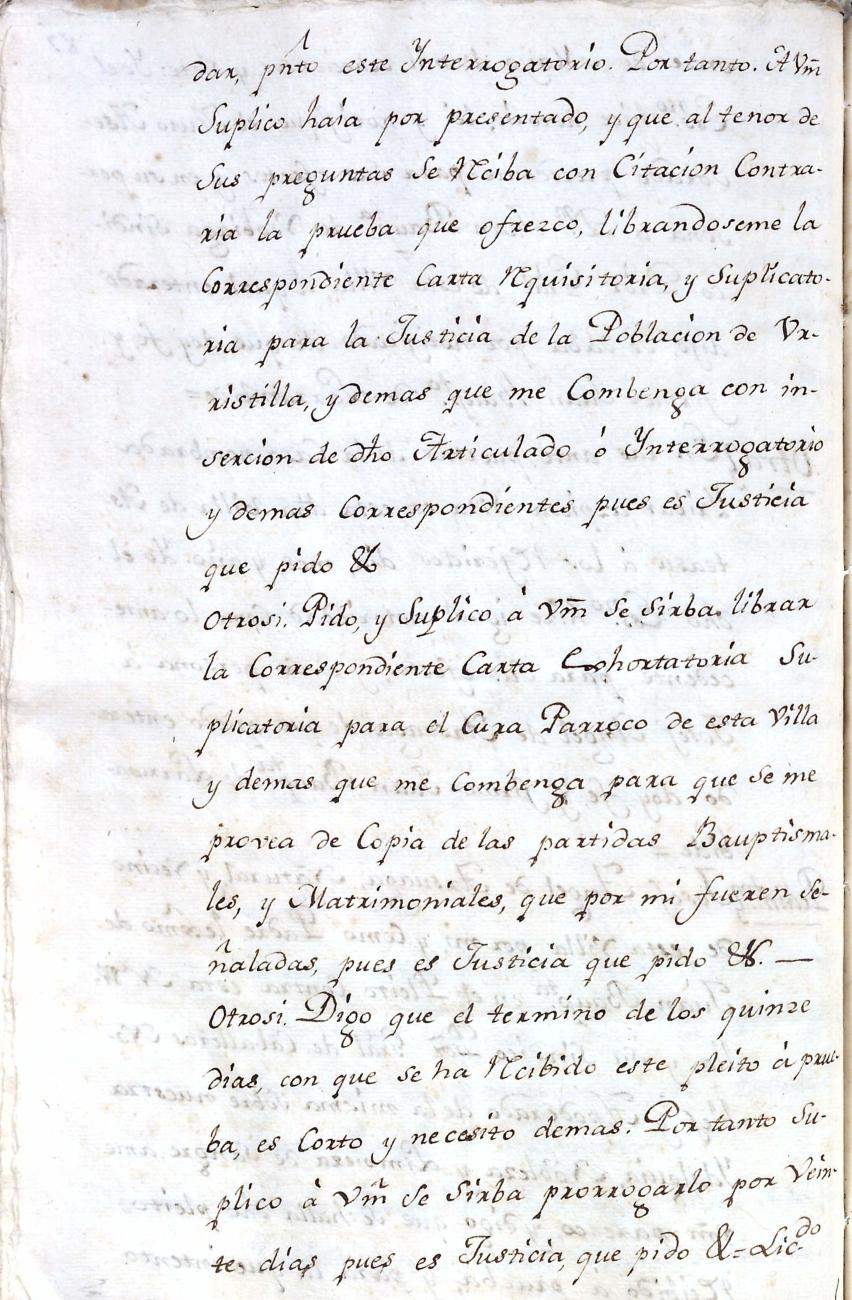 dar, pñto este Ynterrogatorio. Por tanto. A Vm̃
Suplico haia por presentado, y que al tenor de
sus preguntas se Rciba con Citacion Contra-
ria la prueba que ofrezco, librandoseme la
Correspondiente Carta Rquisitoria, y Suplicato-
ria para la Justicia de la Poblacion de Vr-
ristilla, y demas que me Combenga con in-
sercion de dho Articulado ò Ynterrogatorio
y demas Correspondientes pues es Justicia
que pido &
Otrosi. Pido, y Suplico à Vm̃ se sirba librar
la Correspondiente Carta Exhortatoria Su-
plicatoria para el Cura Parroco de esta Villa
y demas que me Combenga para que se me
provea de Copia de las partidas Bauptisma-
les, y Matrimoniales, que por mi fueren se-
ñaladas, pues es Justicia que pido &. —
Otrosi. Digo que el termino de los quinze
dias, con que se ha Rcibido este pleito à prue-
ba, es Corto y necesito demas. Por tanto Su-
plico à Vm̃ se sirba prorrogarlo por Vein-
te dias pues es Justicia, que pido &= Licdo